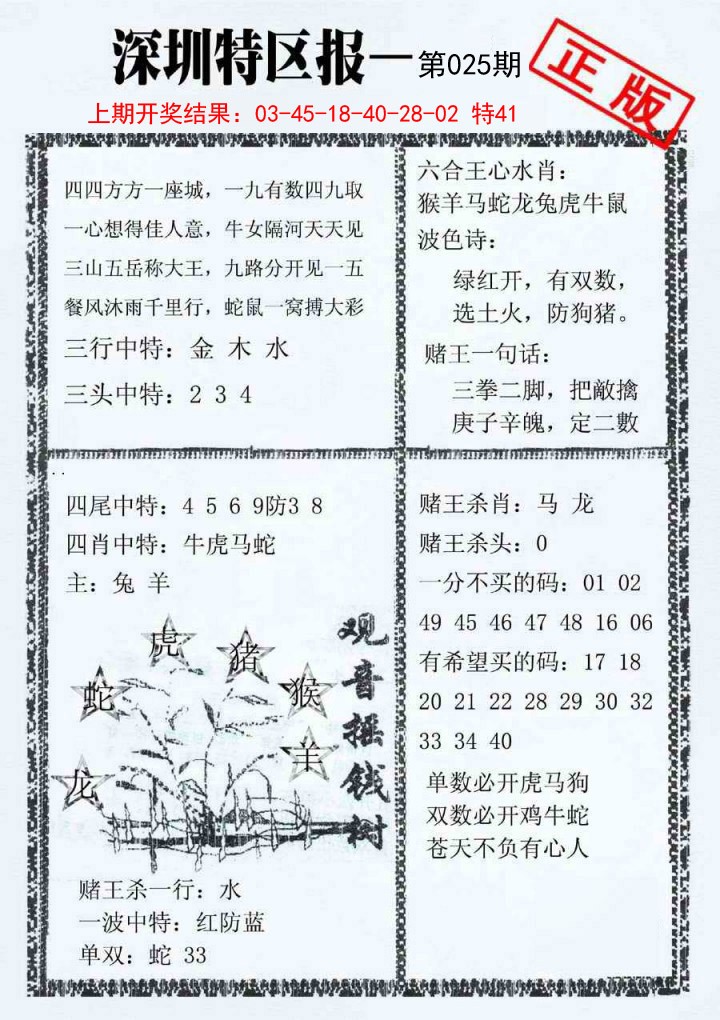 深圳特区报—第025期
正版
上期开奖结果：03-45-18-40-28-02 特41
四四方方一座城，一九有数四九取
一心想得佳人意，牛女隔河天天见
三山五岳称大王，九路分开见一五
餐风沐雨千里行，蛇鼠一窝搏大彩
三行中特：金 木 水
三头中特：2 3 4
六合王心水肖：
猴羊马蛇龙兔虎牛鼠
波色诗：
绿红开，有双数，
选土火，防狗猪。
赌王一句话：
三拳二脚，把敵擒
庚子辛魄，定二數
四尾中特：4 5 6 9防3 8
四肖中特：牛虎马蛇
主：兔 羊
虎
猪
蛇
猴
羊
龙
观音摇钱树
赌王杀一行：水
一波中特：红防蓝
单双：蛇 33
赌王杀肖：马 龙
赌王杀头：0
一分不买的码：01 02
49 45 46 47 48 16 06
有希望买的码：17 18
20 21 22 28 29 30 32
33 34 40
单数必开虎马狗
双数必开鸡牛蛇
苍天不负有心人